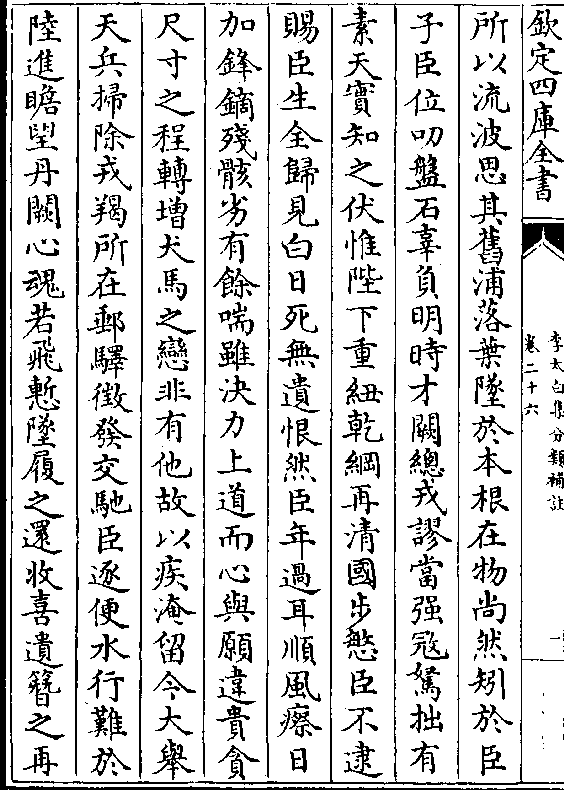 欽定四庫全書
李太白集分類補註
卷二十六
所以流波思其舊浦落葉墜於本根在物尚然矧於臣
子臣位叨盤石辜負明時才闕總戎謬當强冦駑拙有
素天實知之伏惟陛下重紐乾綱再清國步愍臣不逮
賜臣生全歸見白日死無遺恨然臣年過耳順風瘵日
加鋒鏑殘骸劣有餘喘雖決力上道而心與願違貴貪
尺寸之程轉增犬馬之戀非有他故以疾淹留今大舉
天兵掃除戎羯所在郵驛徵發交馳臣逐便水行難於
陸進瞻望丹闕心魂若飛慙墜履之還收喜遺簪之再